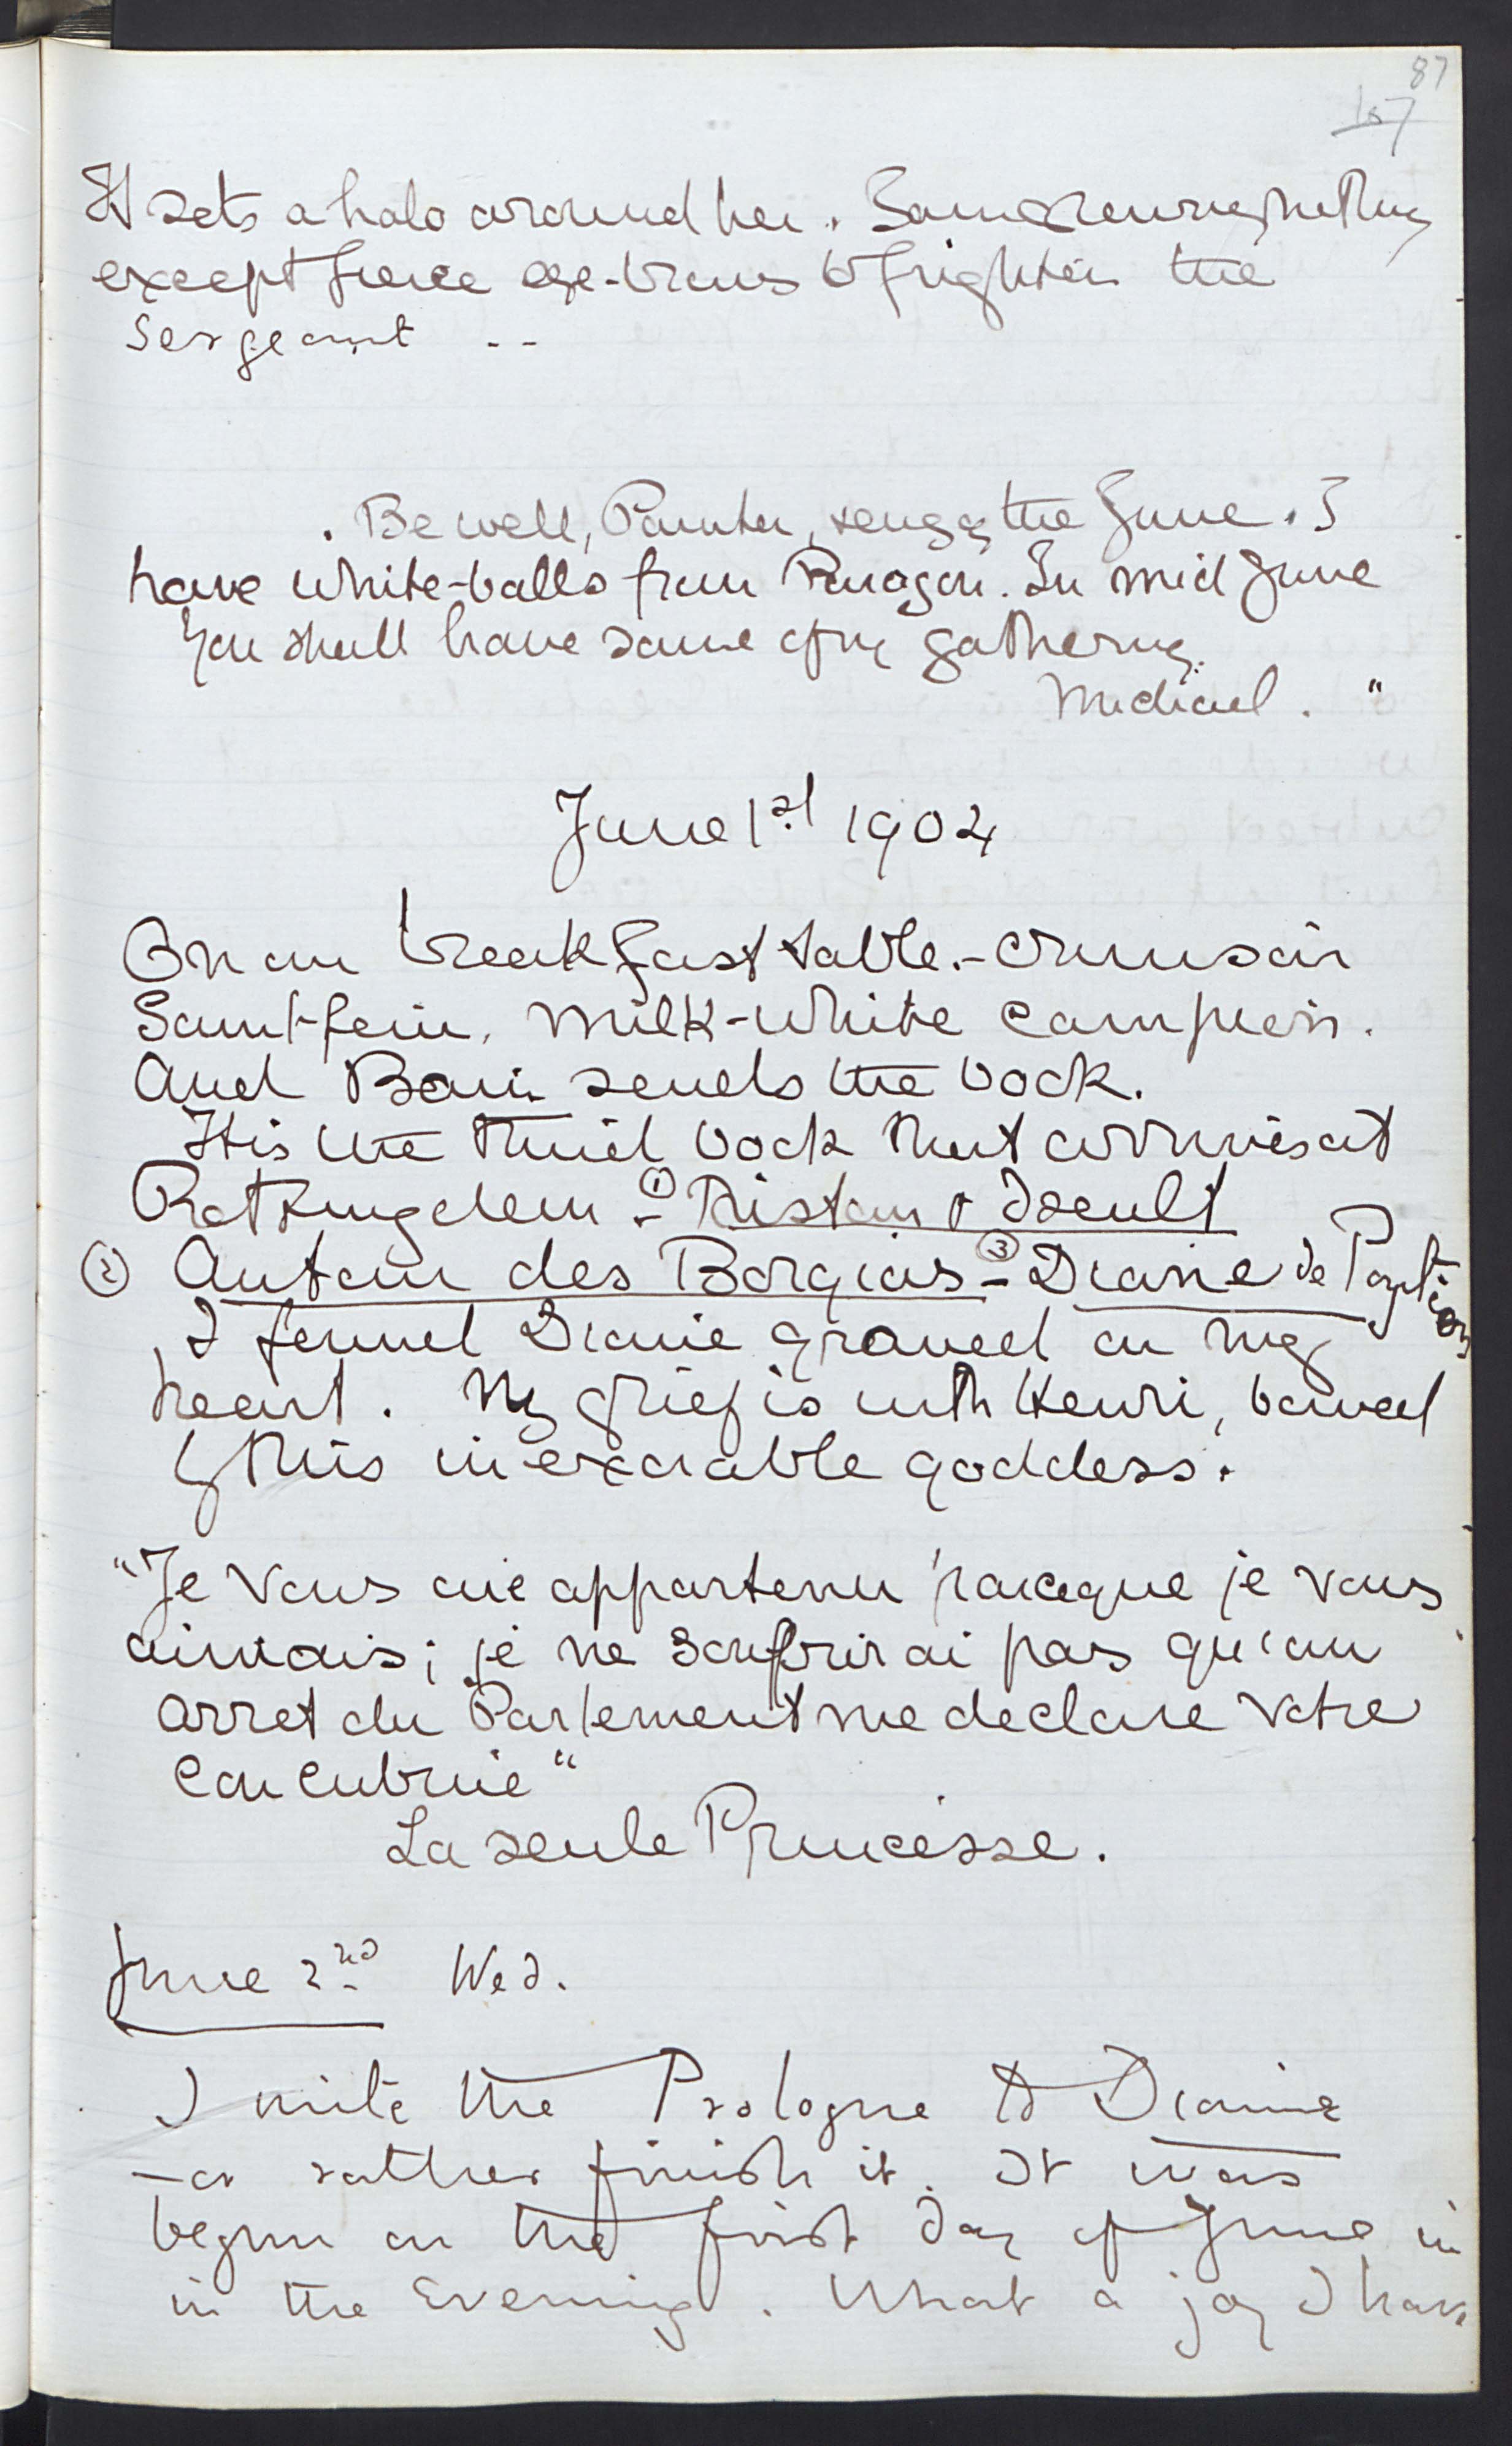 87
167
It sets a halo around her. Sam renews nothing
except fierce eye-brows to frighten the
Sergeant --
. Be well, Painter, & enjoy the June. I
have white-balls from Paragon. In mid June
you shall have some of my gathering.
Michael."
June 1st 1904
On our breakfast table - crimson
Saint-foin, milk-white campion.
And Bain sends the book.
It is the third book that arrives at
Ratkingdem - ① Tristan & Iseult
② Autour des Borgias - ③ Diane de Poytiers
I found Diane graved on my
heart. My grief is with Henri, bowed
by this inexorable goddess.
"Je vous aie appartenu parceque je vous
aimais; je ne souffrirai pas qu'un
arret du Parlement me declare votre
concubine"
La seule Princesse.
June 2nd Wed.
I write the Prologue to Diane
- or rather finish it. It was
begun on the first day of June in
in the Evening. What a joy I have